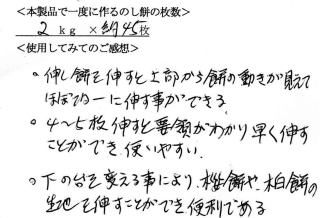 <本製品で一度に作るのし餅の枚数>
2 kg ×約45枚
<使用してみてのご感想>
。伸し餅を伸すと上部から餅の動きが見えて
ほぼ均一に伸す事ができる
。4〜5枚伸すと要領がわかり早く伸す
ことができ、使いやすい.
。下の台を変える事により、桜餅や、柏餅の
生地を伸すことができ便利である